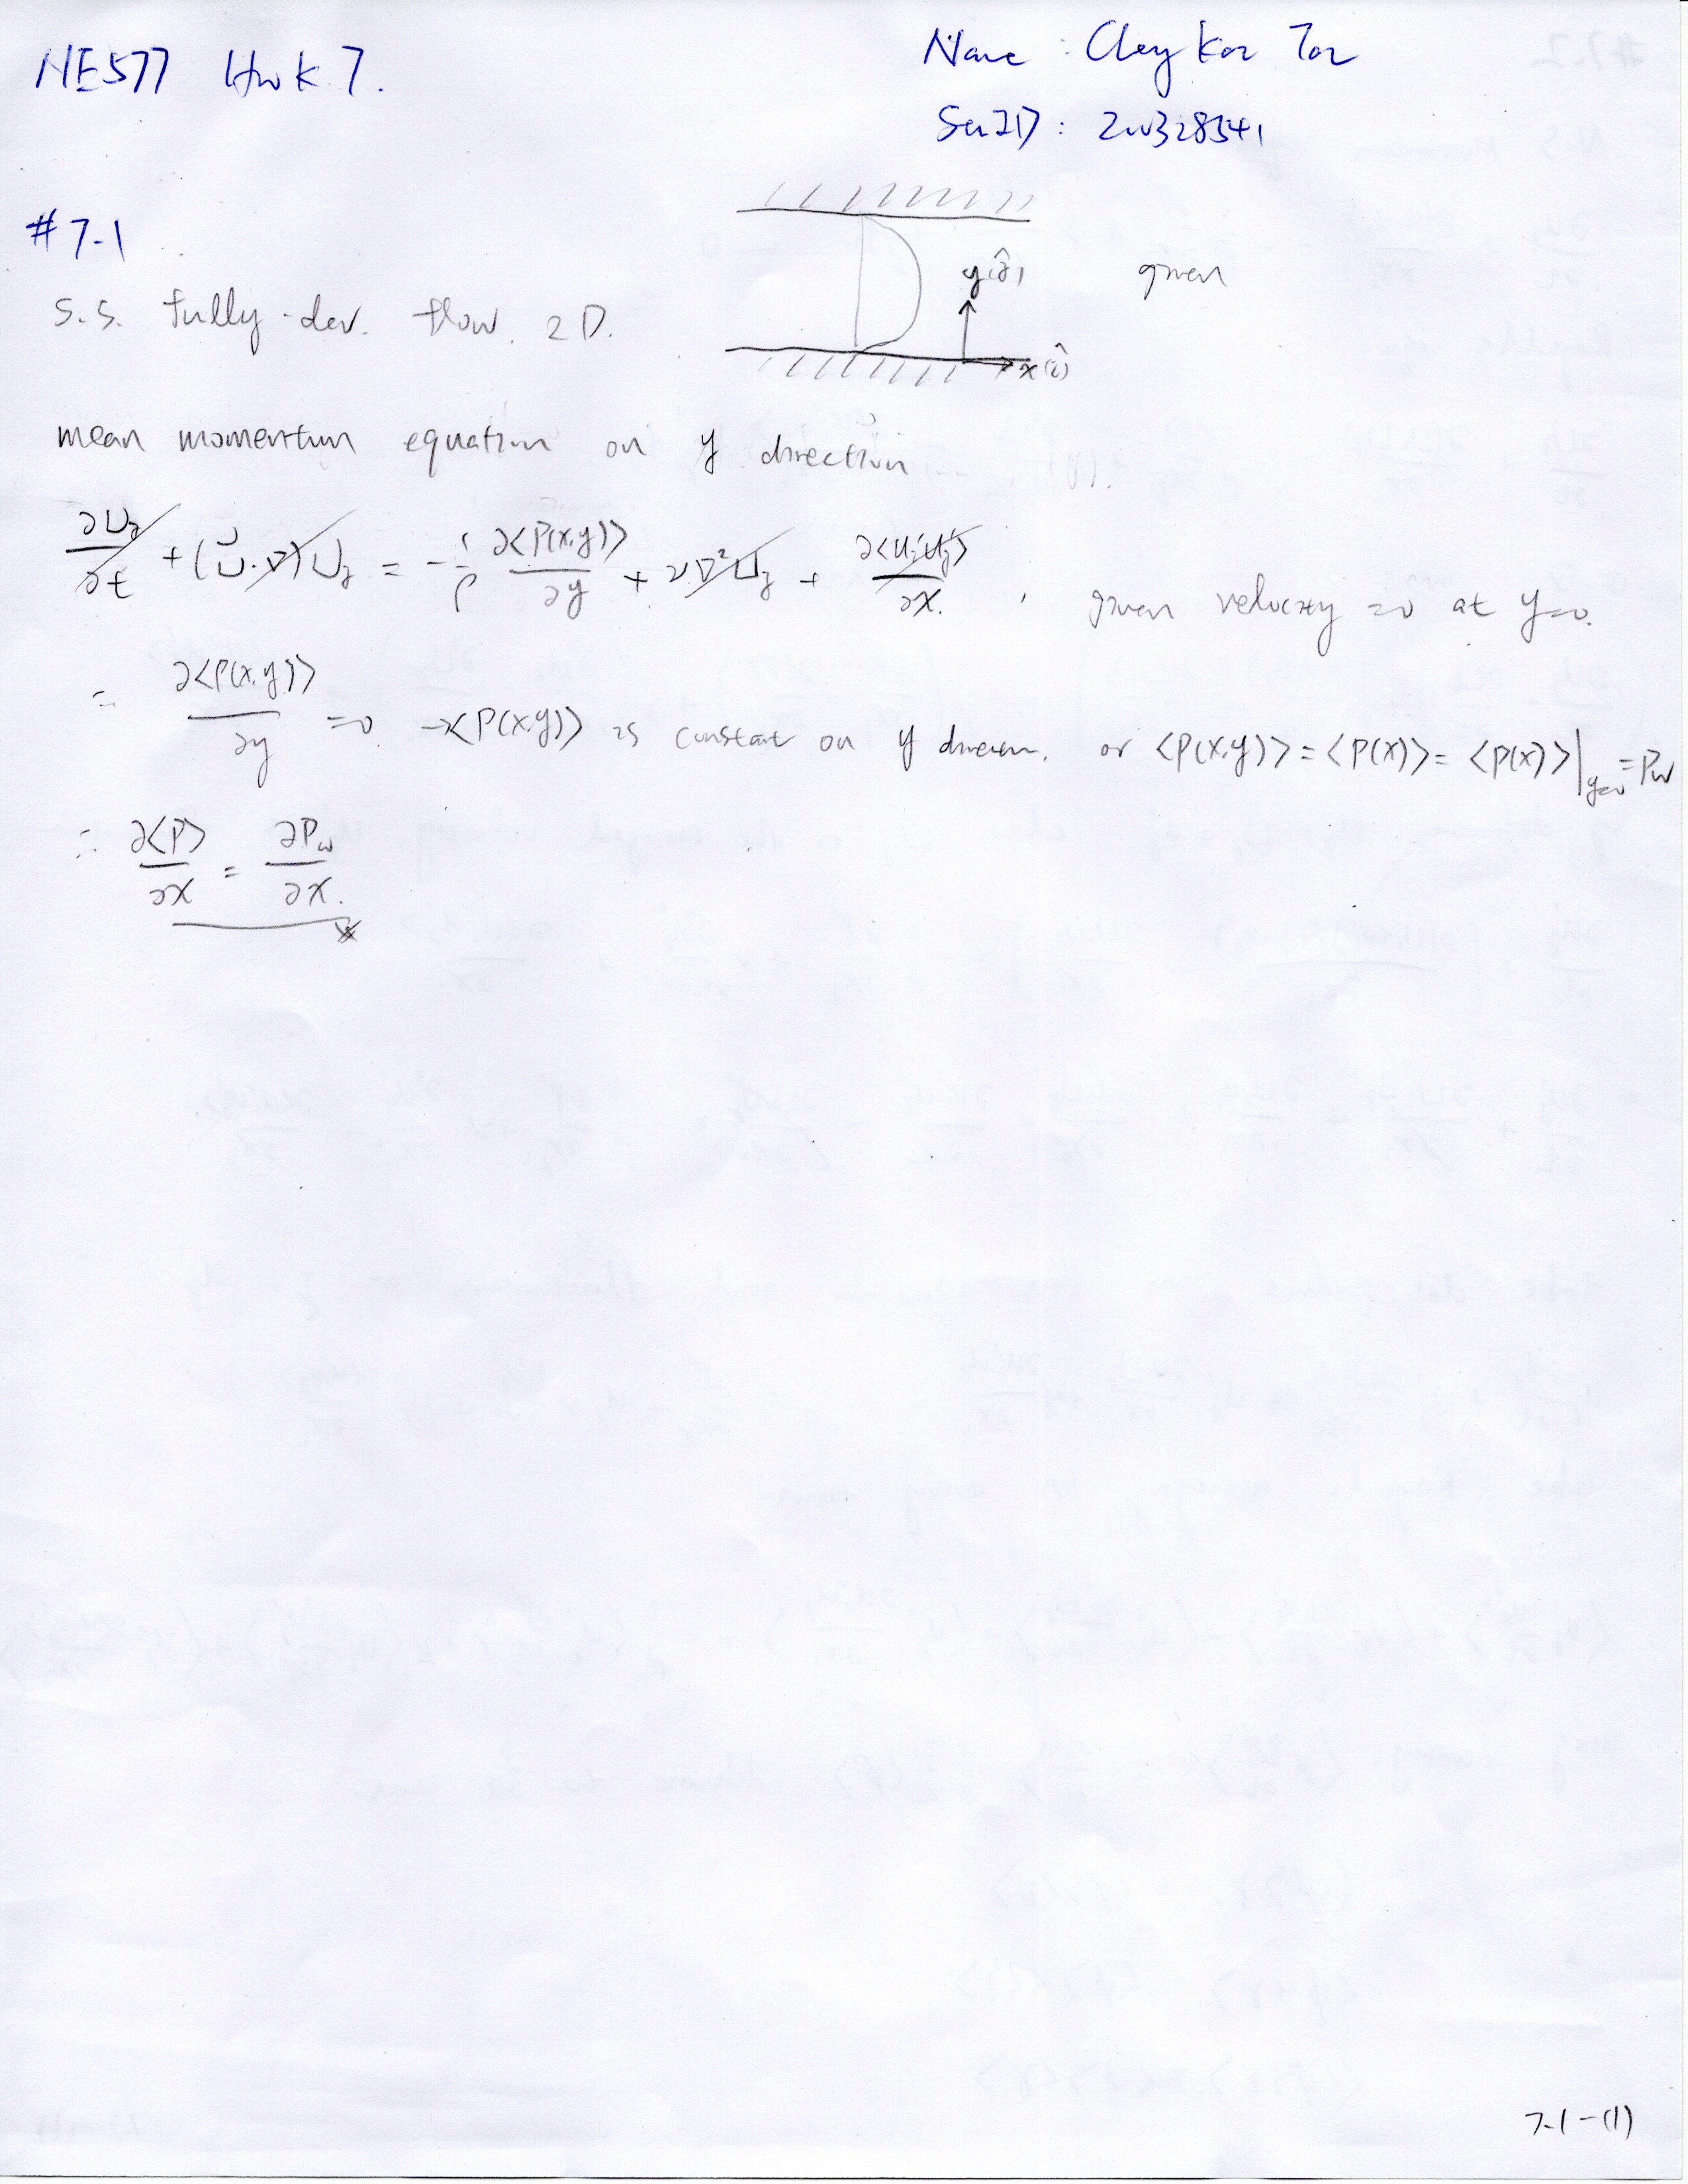 NE577 HwK 7.
Name : Chey Kor Tor
#7-1
given
y(ĵ)
x(î)
S.S. fully-dev. flow. 2D.
mean momentum equation on y direction
∂U_j/∂t + (U·∇)U_j = -1/ρ ∂<P(x,y)>/∂y + ν∇²U_j + ∂<u_i'u_j'>/∂x. , given velocity =0 at y=0.
= ∂<P(x,y)>/∂y =0 → <P(x,y)> is constant on y direction. or <P(x,y)> = <P(x)> = <P(x)>|_{y=0} = P_w
∴ ∂<P>/∂x = ∂P_w/∂x.
7-1-(1)